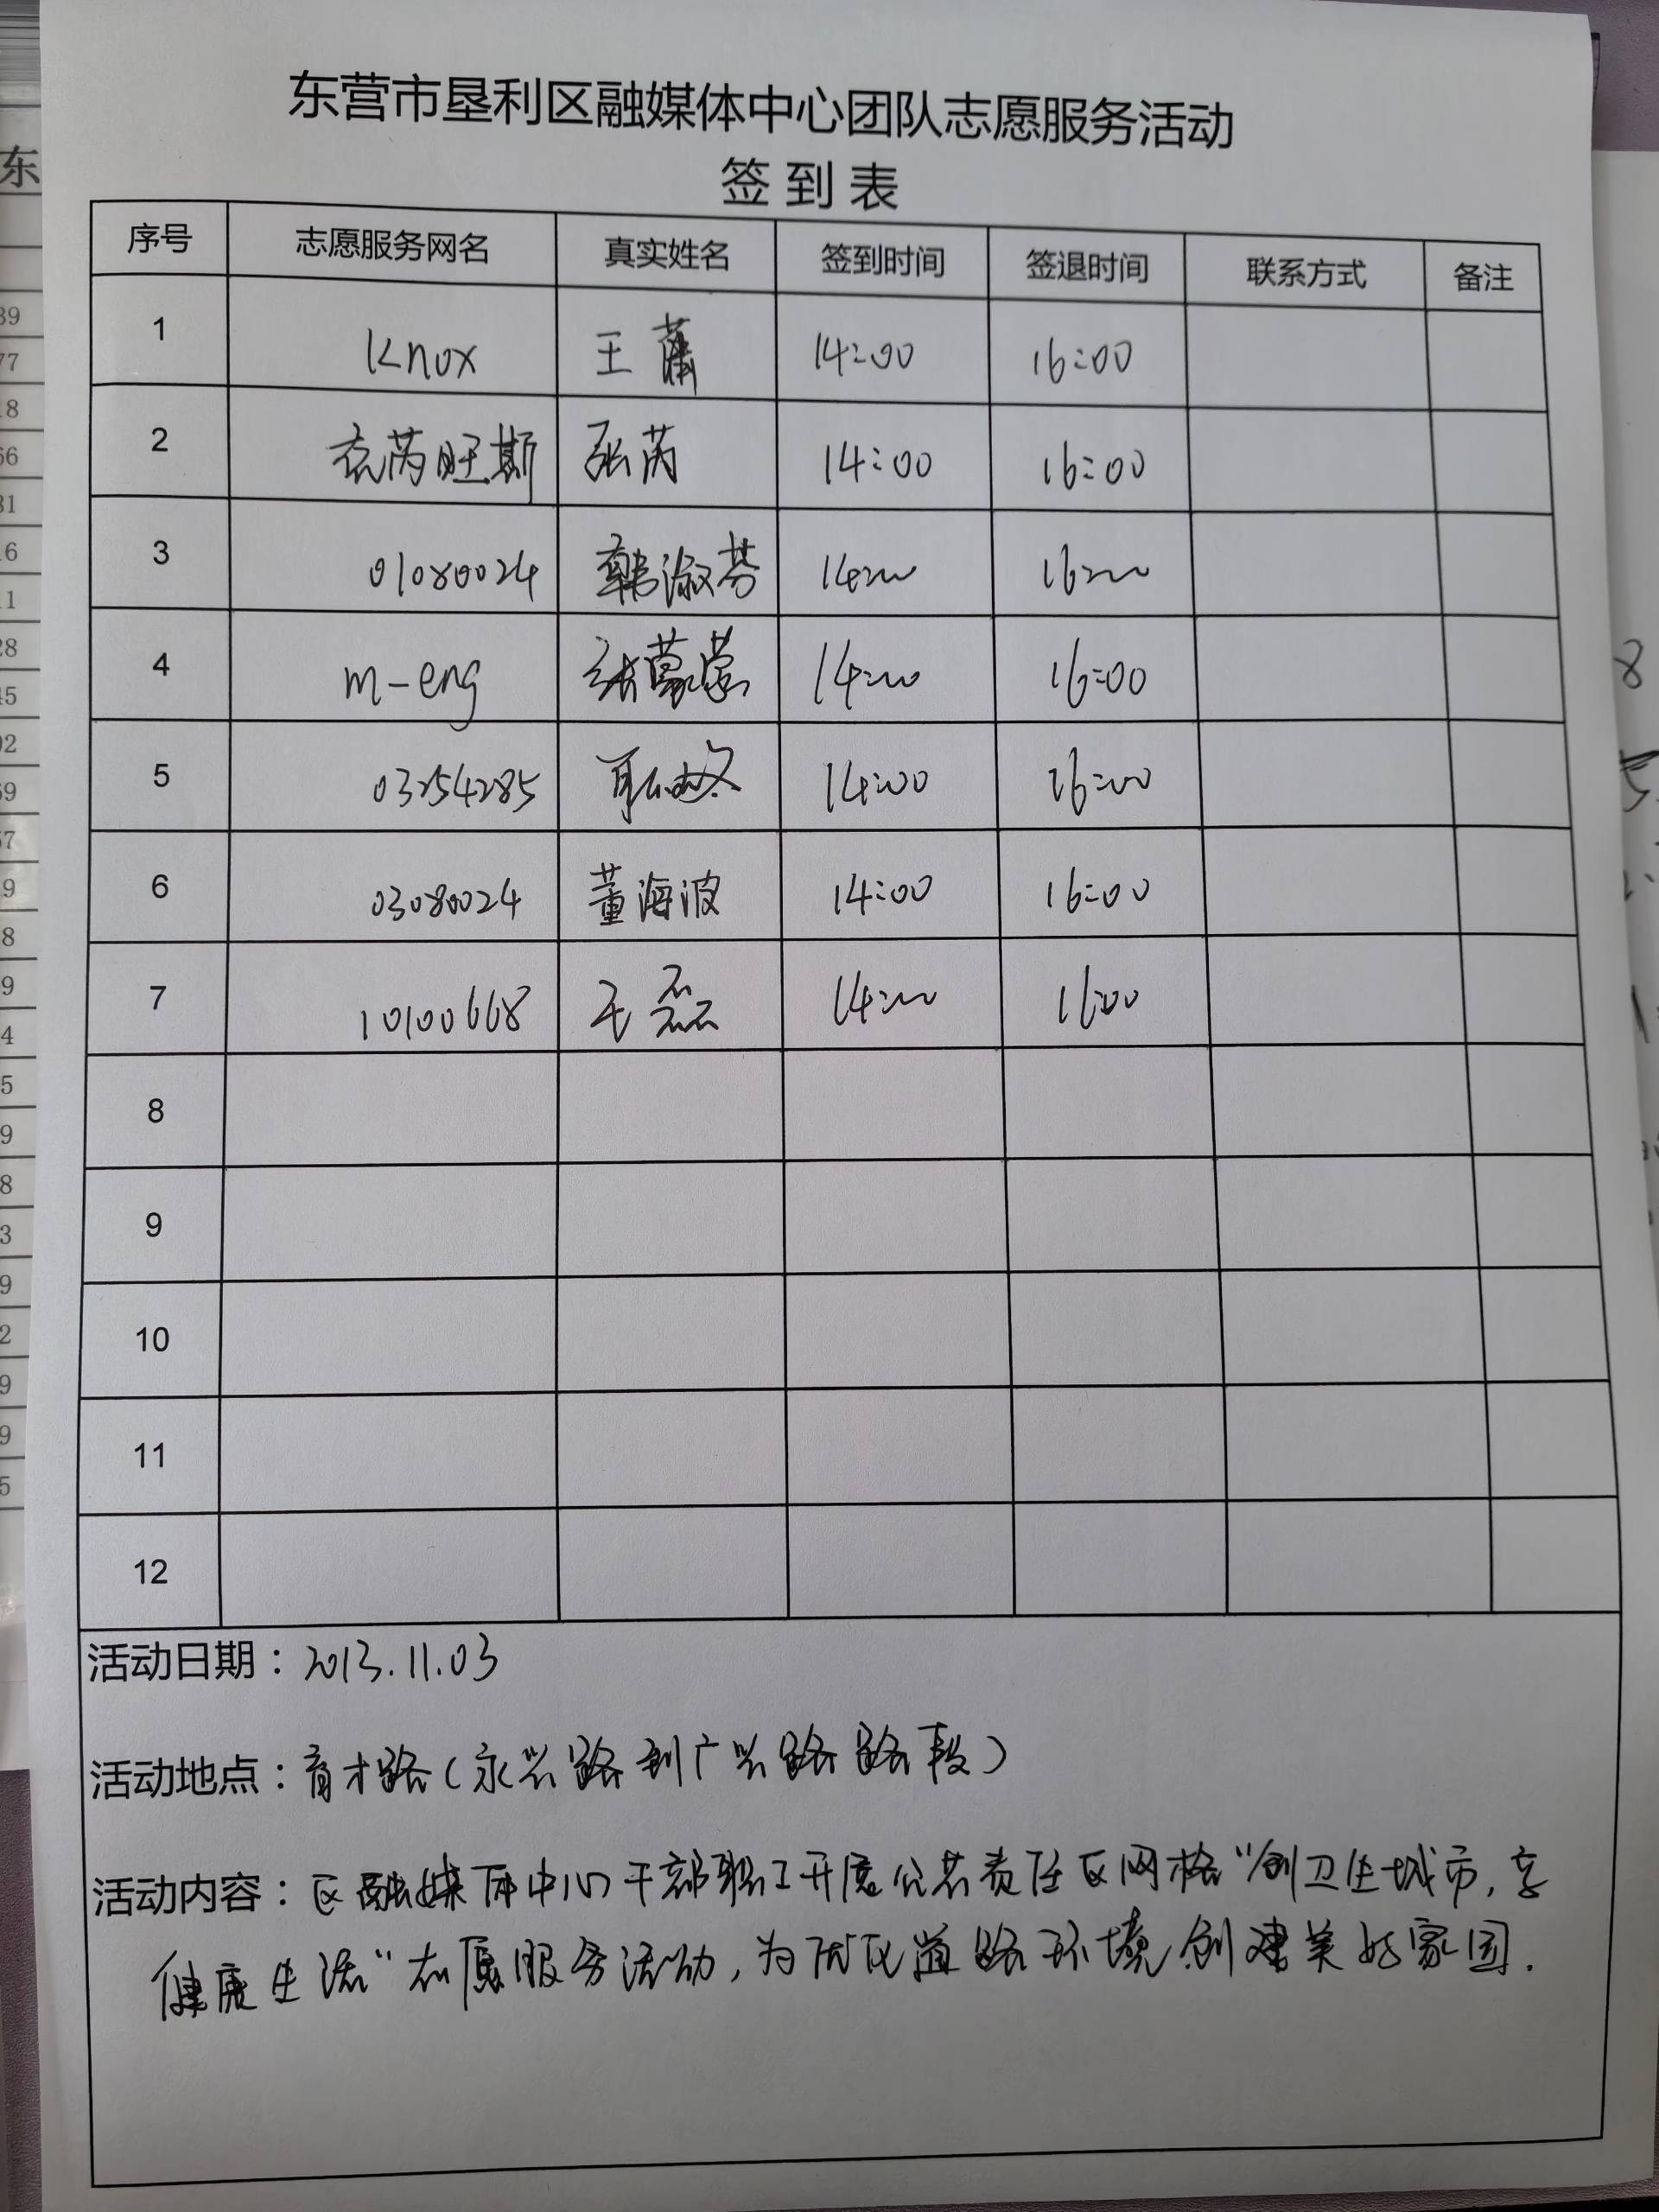 东营市垦利区融媒体中心团队志愿服务活动
签到表
序号 志愿服务网名 真实姓名 签到时间 签退时间 联系方式 备注
1 Knox 王 14:00 16:00
2 衣芮旺斯 张芮 14:00 16:00
3 01080024 韩淑芬 14:00 16:00
4 m-eng 张蒙蒙 14:00 16:00
5 03254285 14:00 16:00
6 03080024 董海波 14:00 16:00
7 10100668 王磊 14:00 16:00
8
9
10
11
12
活动日期：2023.11.03
活动地点：育才路（永兴路到广兴路路段）
活动内容：区融媒体中心干部职工开展公共责任区网格“创卫生城市,享
健康生活”志愿服务活动,为优化道路环境,创建美好家园.